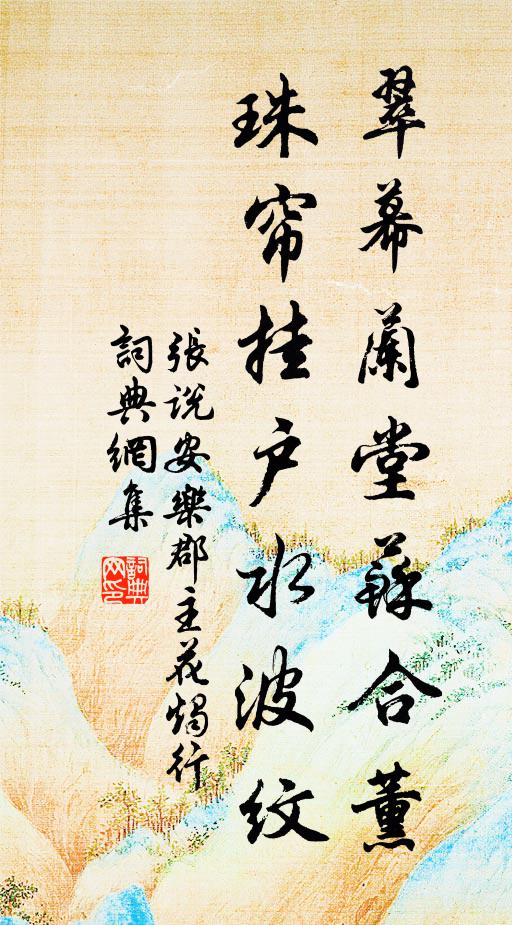 翠幕蘭堂蘇合薰
珠帘挂户水波紋
張说安樂郡主花燭行
詞典網集
詞典网印